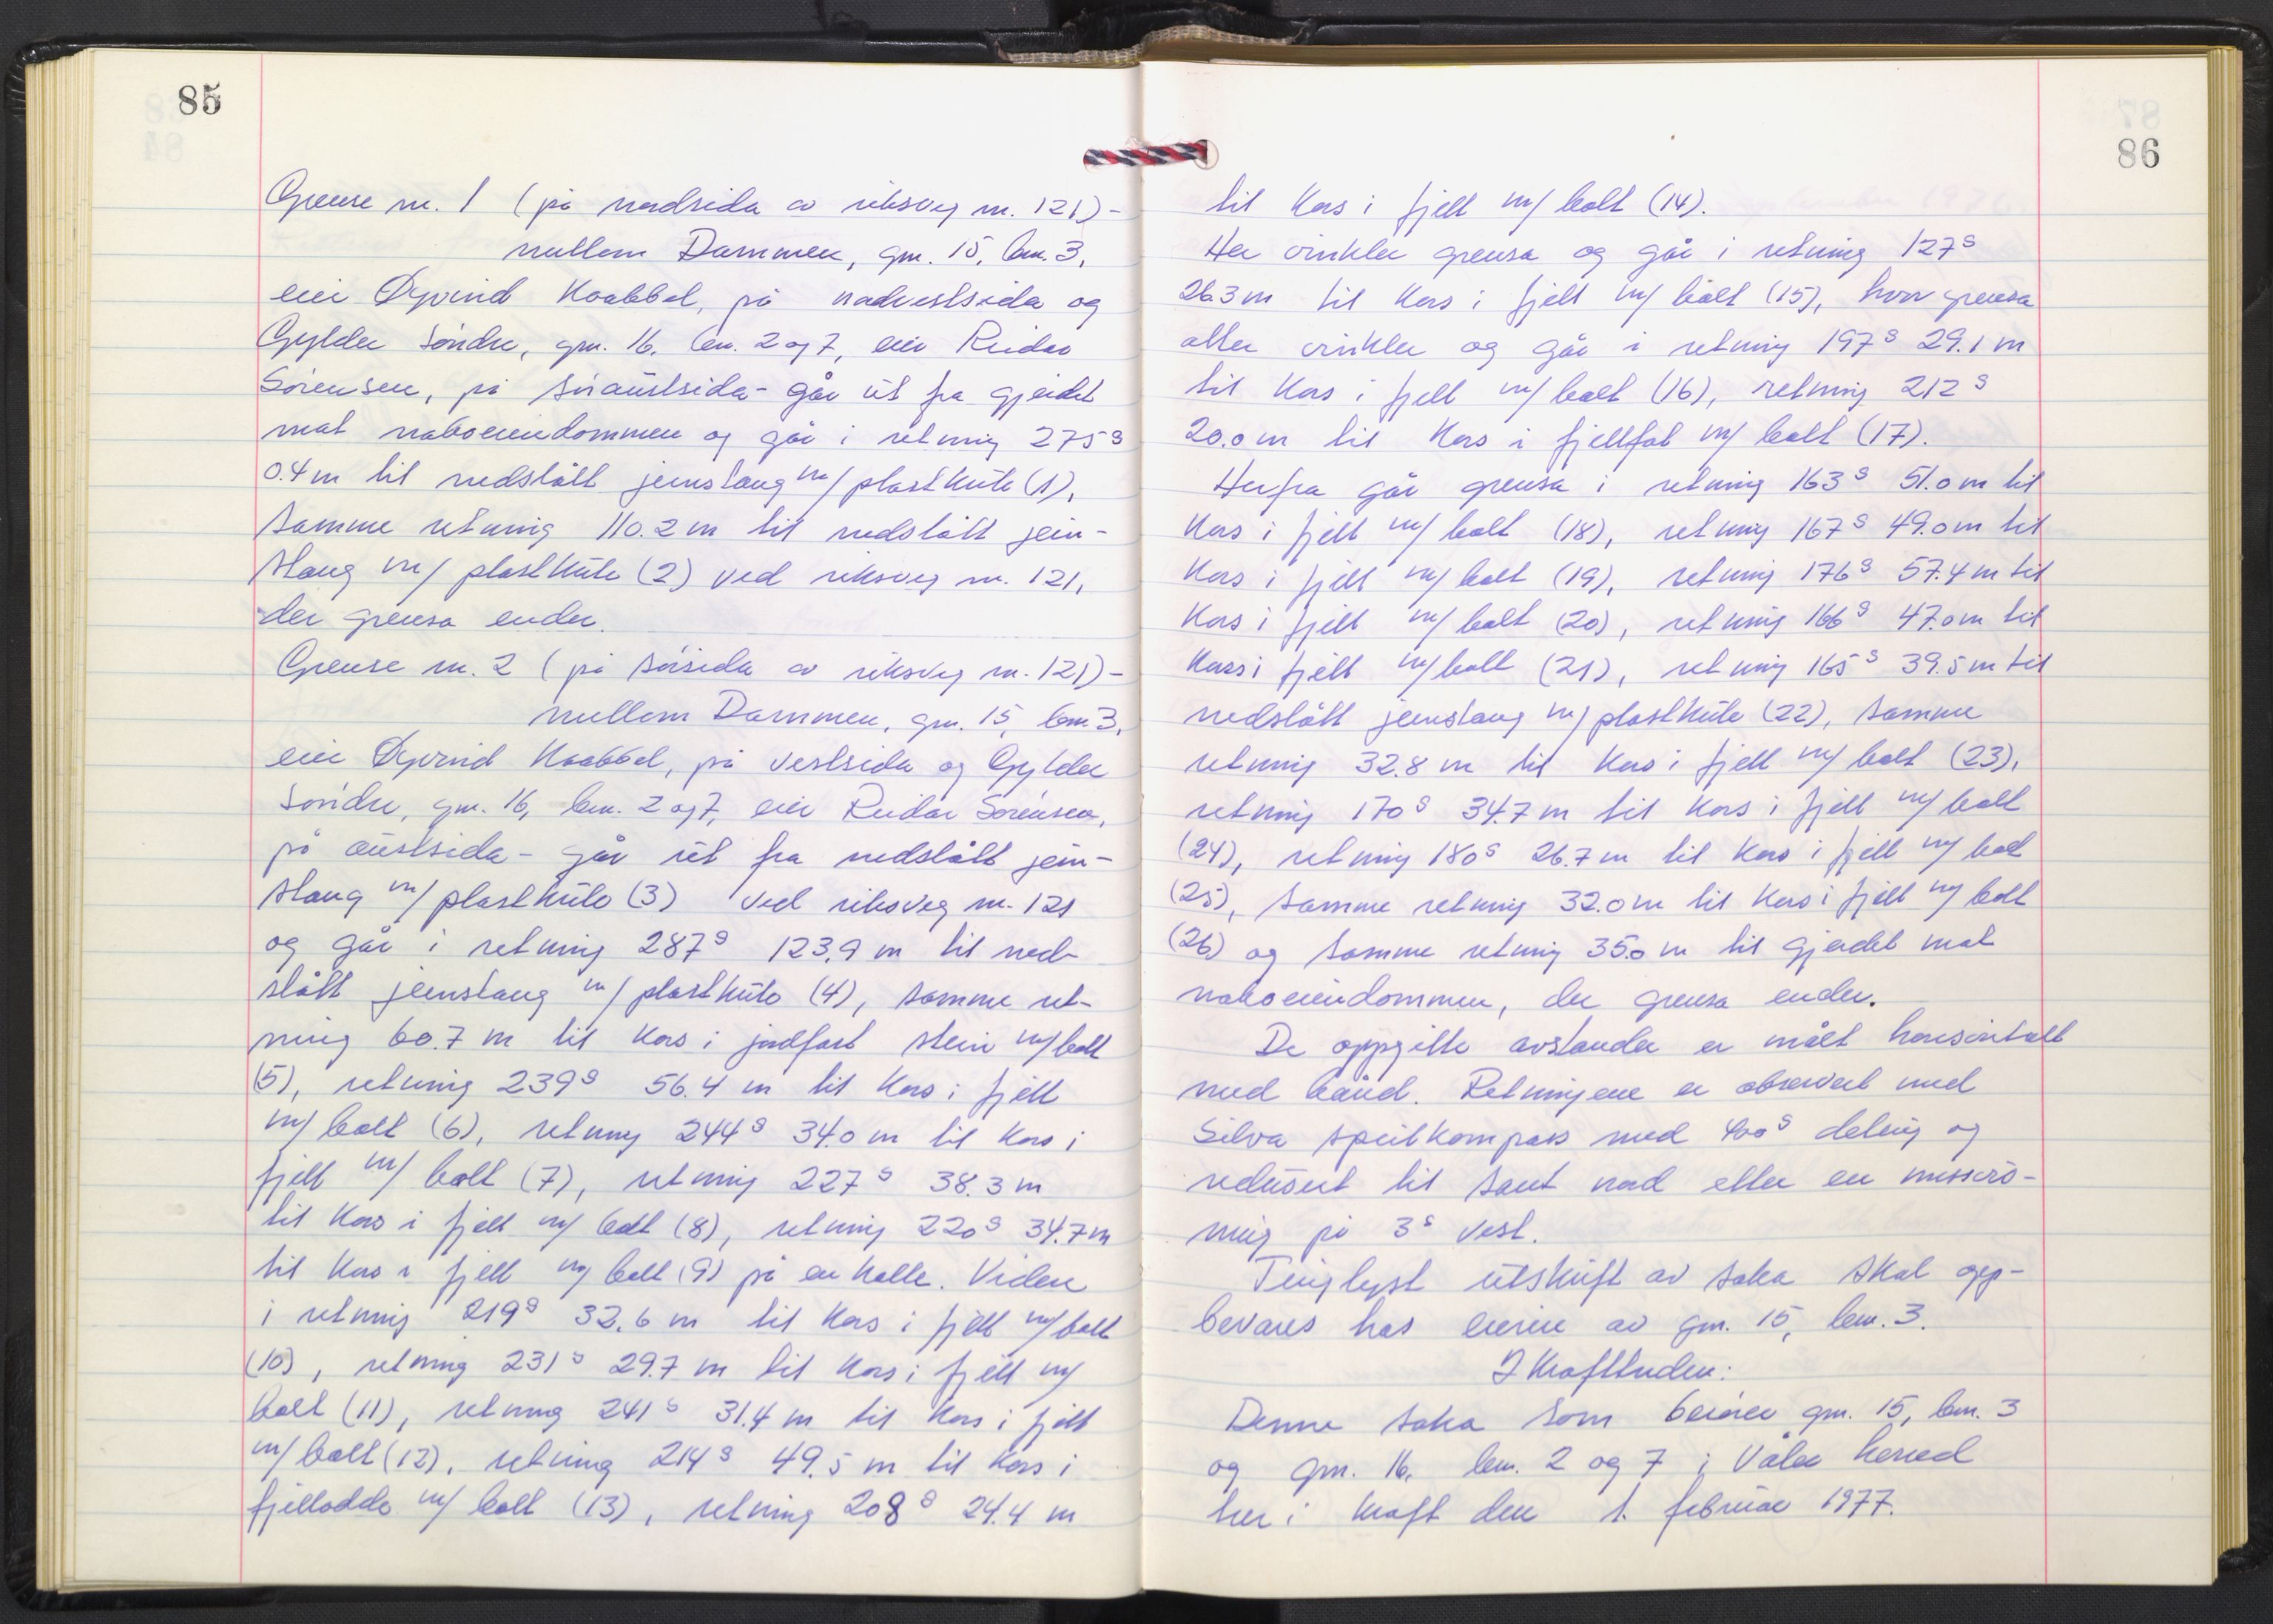 85
Grense nr. 1 (på nordsida av riksveg nr. 121) -
mellom Dammen, gnr. 15, bnr. 3,
eier Øyvind Kaabbel, på nordvestsida og
Gylder søndre, gnr. 16, bnr. 2 og 7, eier Reidar
Sørensen, på søraustsida - går ut fra gjerdet
mot naboeiendommen og går i retning 275g
0.4 m til nedslått jernstang m/ plasthute (1),
samme retning 110.2 m til nedslått jern-
stang m/ plasthute (2) ved riksveg nr. 121,
der grensa ender.
Grense nr. 2 (på sørsida av riksveg nr. 121) -
mellom Dammen, gnr. 15, bnr. 3,
eier Øyvind Kaabbel, på vestsida og Gylder
søndre, gnr. 16, bnr. 2 og 7, eier Reidar Sørensen,
på austsida - går ut fra nedslått jern-
stang m/ plasthute (3) ved riksveg nr. 121
og går i retning 287g 123,9 m til ned-
slått jernstang m/ plasthute (4), samme ret-
ning 60.7 m til kors i jordfast stein m/ bolt
(5), retning 239g 56.4 m til kors i fjell
m/ bolt (6), retning 244g 34.0 m til kors i
fjell m/ bolt (7), retning 227g 38.3 m
til kors i fjell m/ bolt (8), retning 220g 34.7 m
til kors i fjell m/ bolt (9) på en kolle. Videre
i retning 219g 32.6 m til kors i fjell m/ bolt
(10), retning 231g 29.7 m til kors i fjell m/
bolt (11), retning 241g 31.4 m til kors i fjell
m/ bolt (12), retning 214g 49.5 m til kors i
fjellodde m/ bolt (13), retning 208g 24.4 m
86
til kors i fjell m/ bolt (14).
Her vinkler grensa og går i retning 127g
26.3 m til kors i fjell m/ bolt (15), hvor grensa
atter vinkler og går i retning 197g 29.1 m
til kors i fjell m/ bolt (16), retning 212g
20.0 m til kors i fjellfot m/ bolt (17).
Herfra går grensa i retning 163g 51.0 m til
kors i fjell m/ bolt (18), retning 167g 49.0 m til
kors i fjell m/ bolt (19), retning 176g 57.4 m til
kors i fjell m/ bolt (20), retning 166g 47.0 m til
kors i fjell m/ bolt (21), retning 165g 39.5 m til
nedslått jernstang m/ plasthute (22), samme
retning 32.8 m til kors i fjell m/ bolt (23),
retning 170g 34.7 m til kors i fjell m/ bolt
(24), retning 180g 26.7 m til kors i fjell m/ bolt
(25), samme retning 32.0 m til kors i fjell m/ bolt
(26) og samme retning 35.0 m til gjerdet mot
naboeiendommen, der grensa ender.
De oppgitte avstander er målt horisontalt
med bånd. Retningene er observert med
Silva speilkompass med 400g deling og
redusert til sant nord etter en missvis-
ning på 3g vest.
Tinglyst utskrift av saka skal opp-
bevares hos eieren av gnr. 15, bnr. 3.
Ikrafttreden:
Denne saka som berører gnr. 15, bnr. 3
og gnr. 16, bnr. 2 og 7 i Våler herred
trer i kraft den 1. februar 1977.